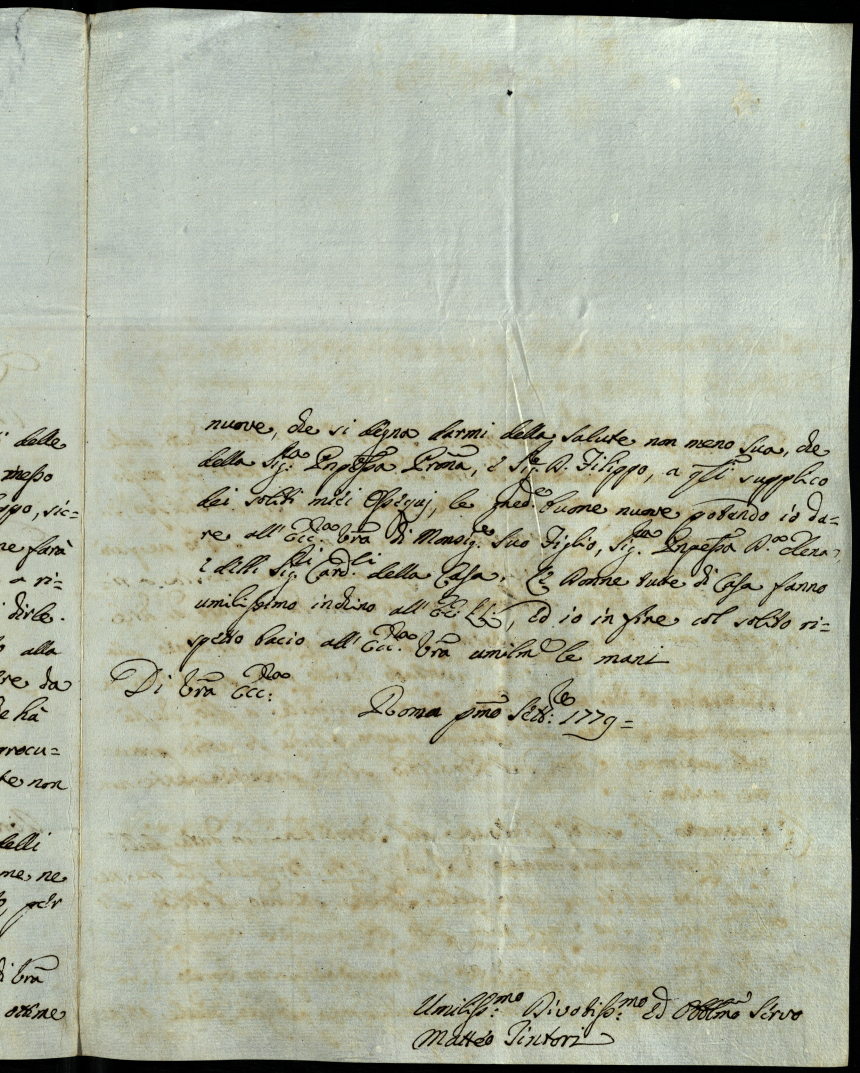 i delle
messo
ppo, sic=
ne farà
a ri=
i dirle.
alla
re da
e hà
rrocu=
te non
delli
me ne
per
di Vrã
ottime
nuove, che si degna darmi della salute non meno sua, che
della Sig.ra Pnpessa Proña, e Sig.e D. Filippo, a qsti supplico
dei soliti miei Ossequj, le med.e buone nuove potendo io da=
re all'Ecc.za Vrã di Monsig.e Suo Figlio, Sig.ra Pnpessa D.a Elena,
e dell. Sig.ri Card.li della Casa. Le Donne tutte di Casa fanno
umilissimo inchino all'EE. LL., ed io in fine col solito ri=
spetto bacio all'Ecc.za Vrã umilm.e le mani
Di Vrã Ecc.za
Roma pmo Sett.re 1779=
Umiliss.mo Divotiss.mo ed Obblmo Servo
Matteo Tintori